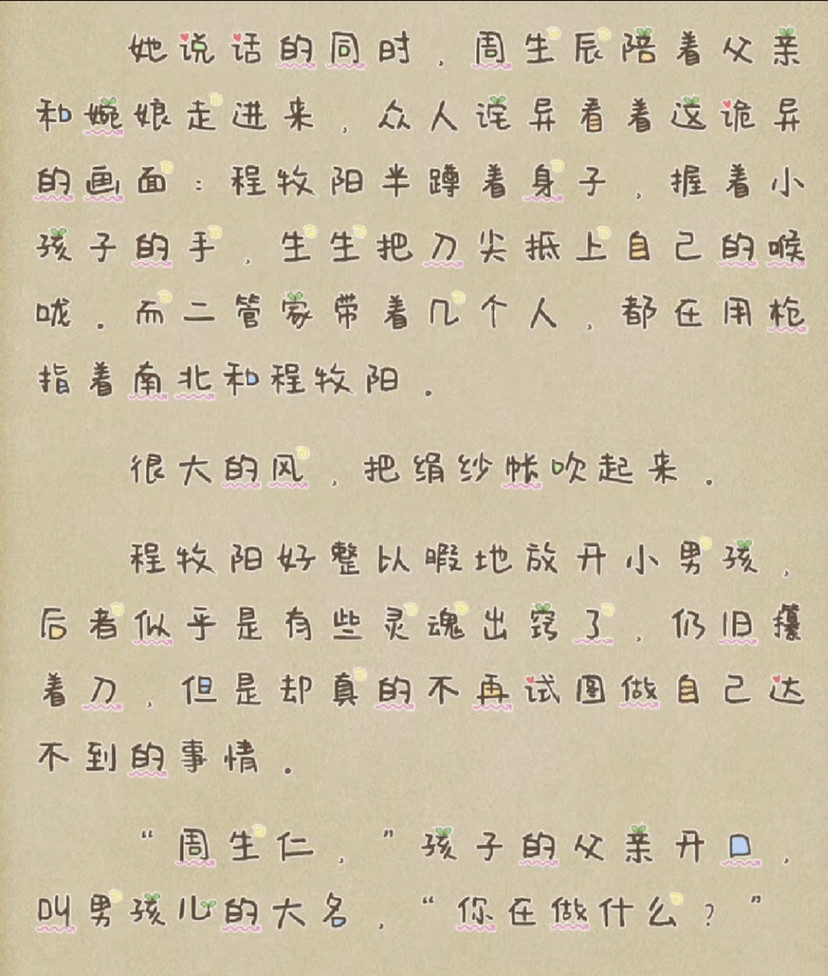 她说话的同时，周生辰陪着父亲
和婉娘走进来，众人诧异看着这诡异
的画面：程牧阳半蹲着身子，握着小
孩子的手，生生把刀尖抵上自己的喉
咙。而二管家带着几个人，都在用枪
指着南北和程牧阳。
很大的风，把绢纱帐吹起来。
程牧阳好整以暇地放开小男孩，
后者似乎是有些灵魂出窍了，仍旧攥
着刀，但是却真的不再试图做自己达
不到的事情。
“周生仁，”孩子的父亲开口，
叫男孩儿的大名，“你在做什么？”